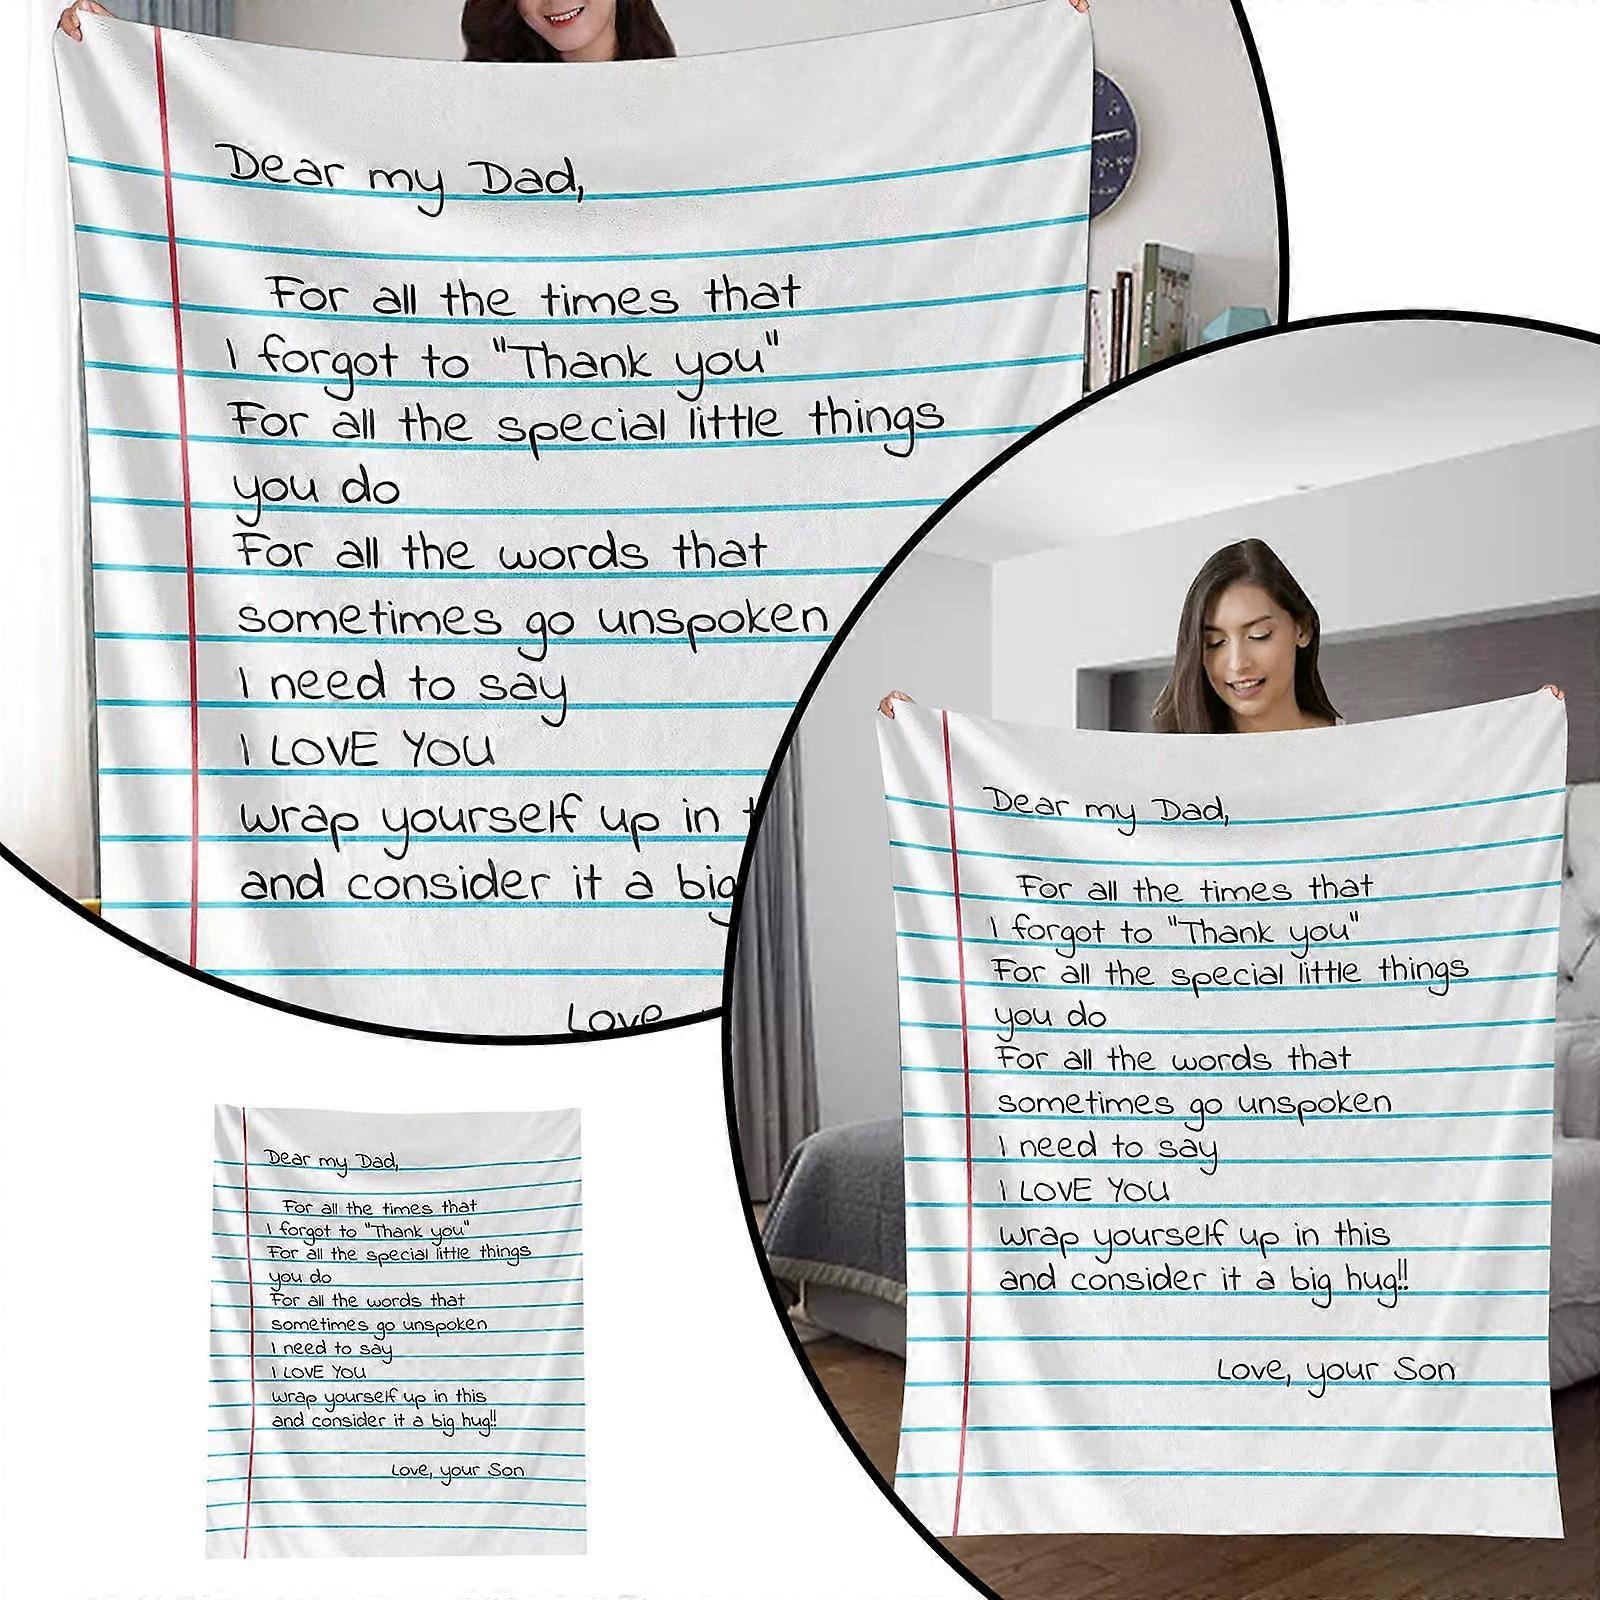 Dear my Dad,
For all the times that
I forgot to "Thank you"
For all the special little things
you do
For all the words that
sometimes go unspoken
I need to say
I LOVE YOU
wrap yourself up in
and consider it a big
Love
Dear my Dad,
For all the times that
I forgot to "Thank you"
For all the special little things
you do
For all the words that
sometimes go unspoken
I need to say
I LOVE YOU
wrap yourself up in this
and consider it a big hug!!
Love, your Son
Dear my Dad,
For all the times that
I forgot to "Thank you"
For all the special little things
you do
For all the words that
sometimes go unspoken
I need to say
I LOVE YOU
wrap yourself up in this
and consider it a big hug!!
Love, your Son